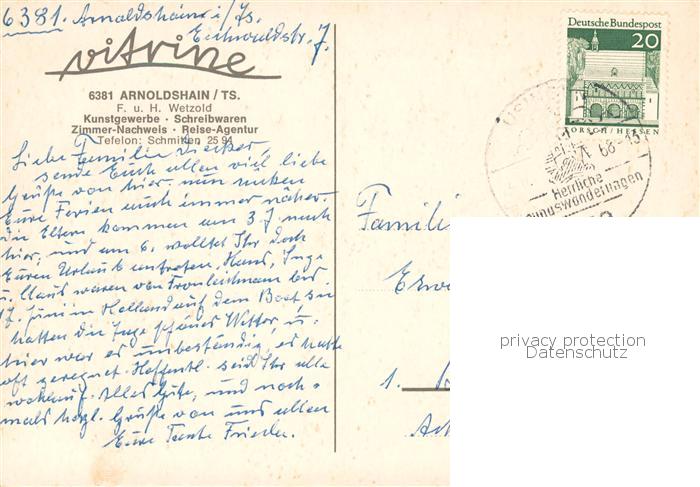 6381 Arnoldshain i/Ts.
Eichwaldstr. 7.
vitrine
6381 ARNOLDSHAIN / TS.
F. u. H. Wetzold
Kunstgewerbe · Schreibwaren
Zimmer-Nachweis · Reise-Agentur
Telefon: Schmitten 25 91
Liebe Familie
sende Euch allen viel liebe
Grüße von hier, nun rücken
Eure Ferien auch immer näher.
Die Eltern kommen am 3.7. nach
hier, und am 6. wolltet Ihr doch
Euren Urlaub antreten. Hans, Inge
u. Claus waren von Fronleichnam bis
17. Juni in Holland auf dem Boot, sie
hatten die Tage schönes Wetter, u.
hier war es unbeständig, es hatte
oft geregnet. Hoffentl. seid Ihr alle
wohlauf. Alles Gute, und noch-
mals herzl. Grüße von uns allen
Eure Tante Frieda.
Deutsche Bundespost
20
LORSCH / HESSEN
68-13
Herrliche
Taunuswanderungen
Famili
1.
privacy protection
Datenschutz